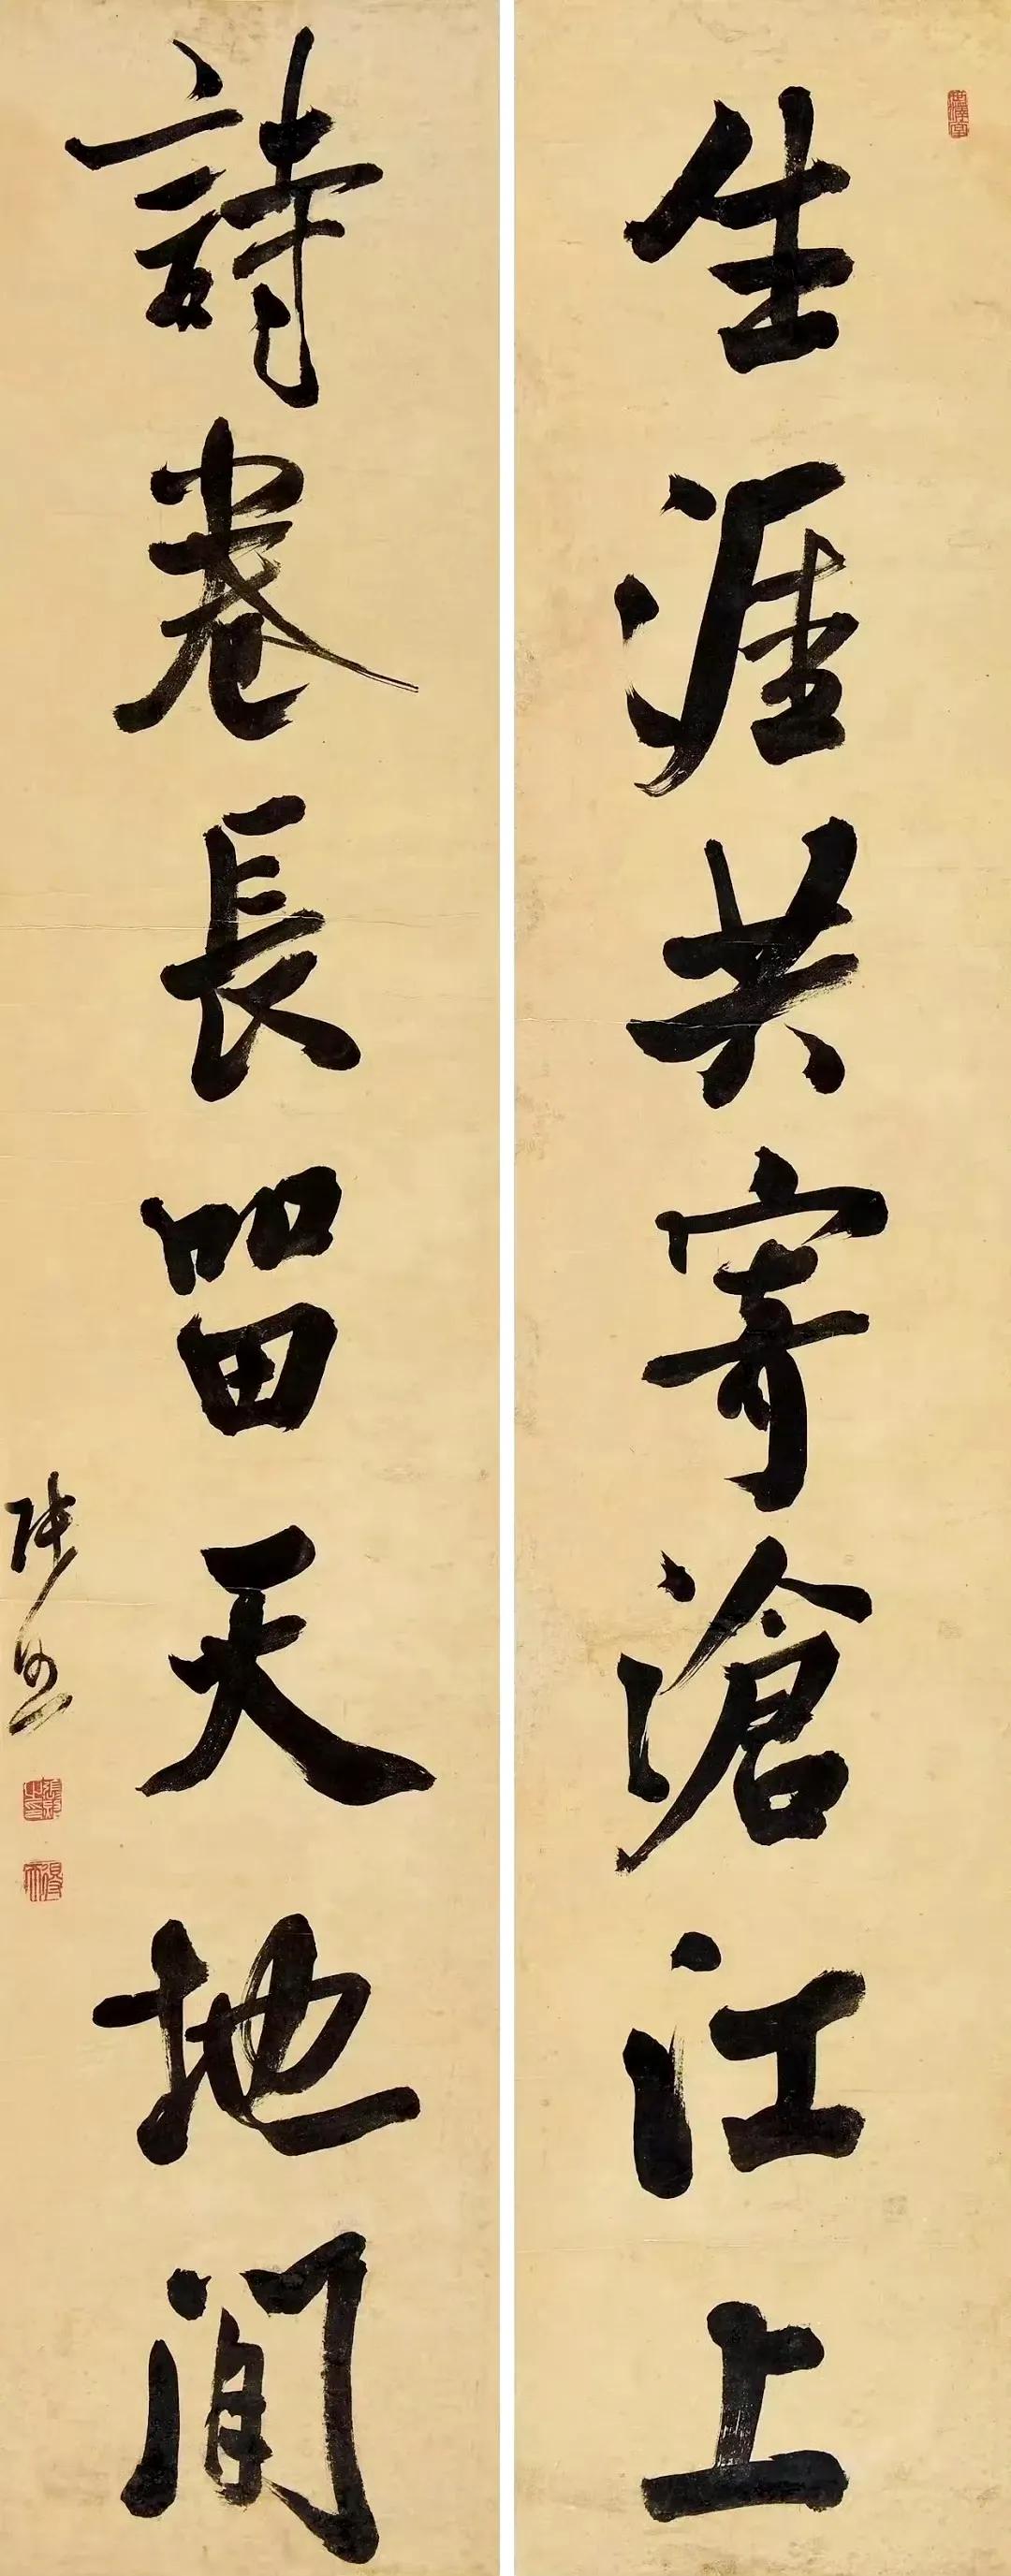 生涯共寄滄江上
詩卷長留天地間
張照